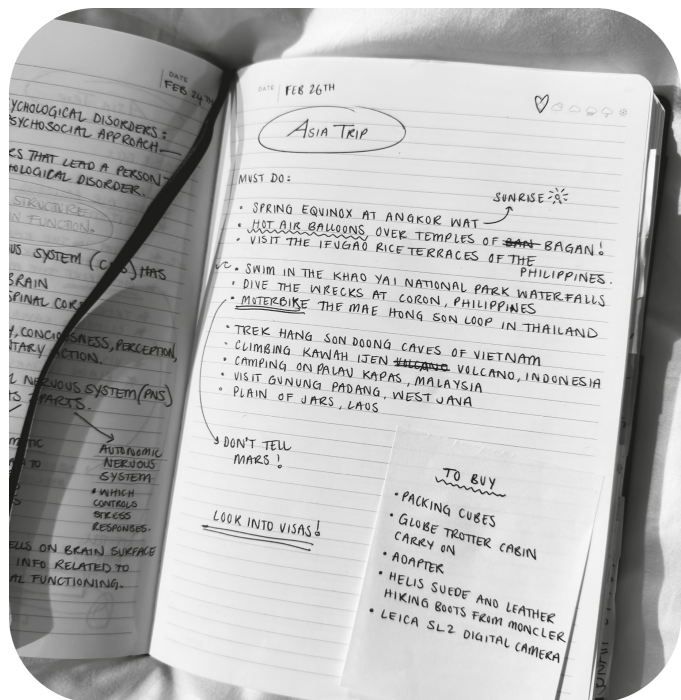 DATE
FEB 24TH
PSYCHOLOGICAL DISORDERS:
PSYCHOSOCIAL APPROACH
THAT LEAD A PERSON
DISORDER.
STRUCTURE
FUNCTION.
SYSTEM (CNS) HAS
BRAIN
SPINAL
PERCEPTION,
ACTION.
NERVOUS SYSTEM (PNS)
PARTS.
AUTONOMIC
NERVOUS
SYSTEM
• WHICH
CONTROLS
STRESS
RESPONSES.
ON BRAIN SURFACE
INFO RELATED TO
FUNCTIONING.
DATE FEB 26TH
ASIA TRIP
MUST DO:
SUNRISE
• SPRING EQUINOX AT ANGKOR WAT
• HOT AIR BALLOONS, OVER TEMPLES OF BAN BAGAN!
• VISIT THE IFUGAO RICE TERRACES OF THE
PHILIPPINES.
• SWIM IN THE KHAO YAI NATIONAL PARK WATERFALLS
• DIVE THE WRECKS AT CORON, PHILIPPINES
• MOTERBIKE THE MAE HONG SON LOOP IN THAILAND
• TREK HANG SON DOONG CAVES OF VIETNAM
• CLIMBING KAWAH IJEN VOLCANO, INDONESIA
• CAMPING ON PALAU KAPAS, MALAYSIA
• VISIT GUNUNG PADANG, WEST JAVA
• PLAIN OF JARS, LAOS
DON'T TELL
MARS!
LOOK INTO VISAS!
TO BUY
• PACKING CUBES
• GLOBE TROTTER CABIN
CARRY ON
• ADAPTER
• HELIS SUEDE AND LEATHER
HIKING BOOTS FROM MONCLER
• LEICA SL2 DIGITAL CAMERA